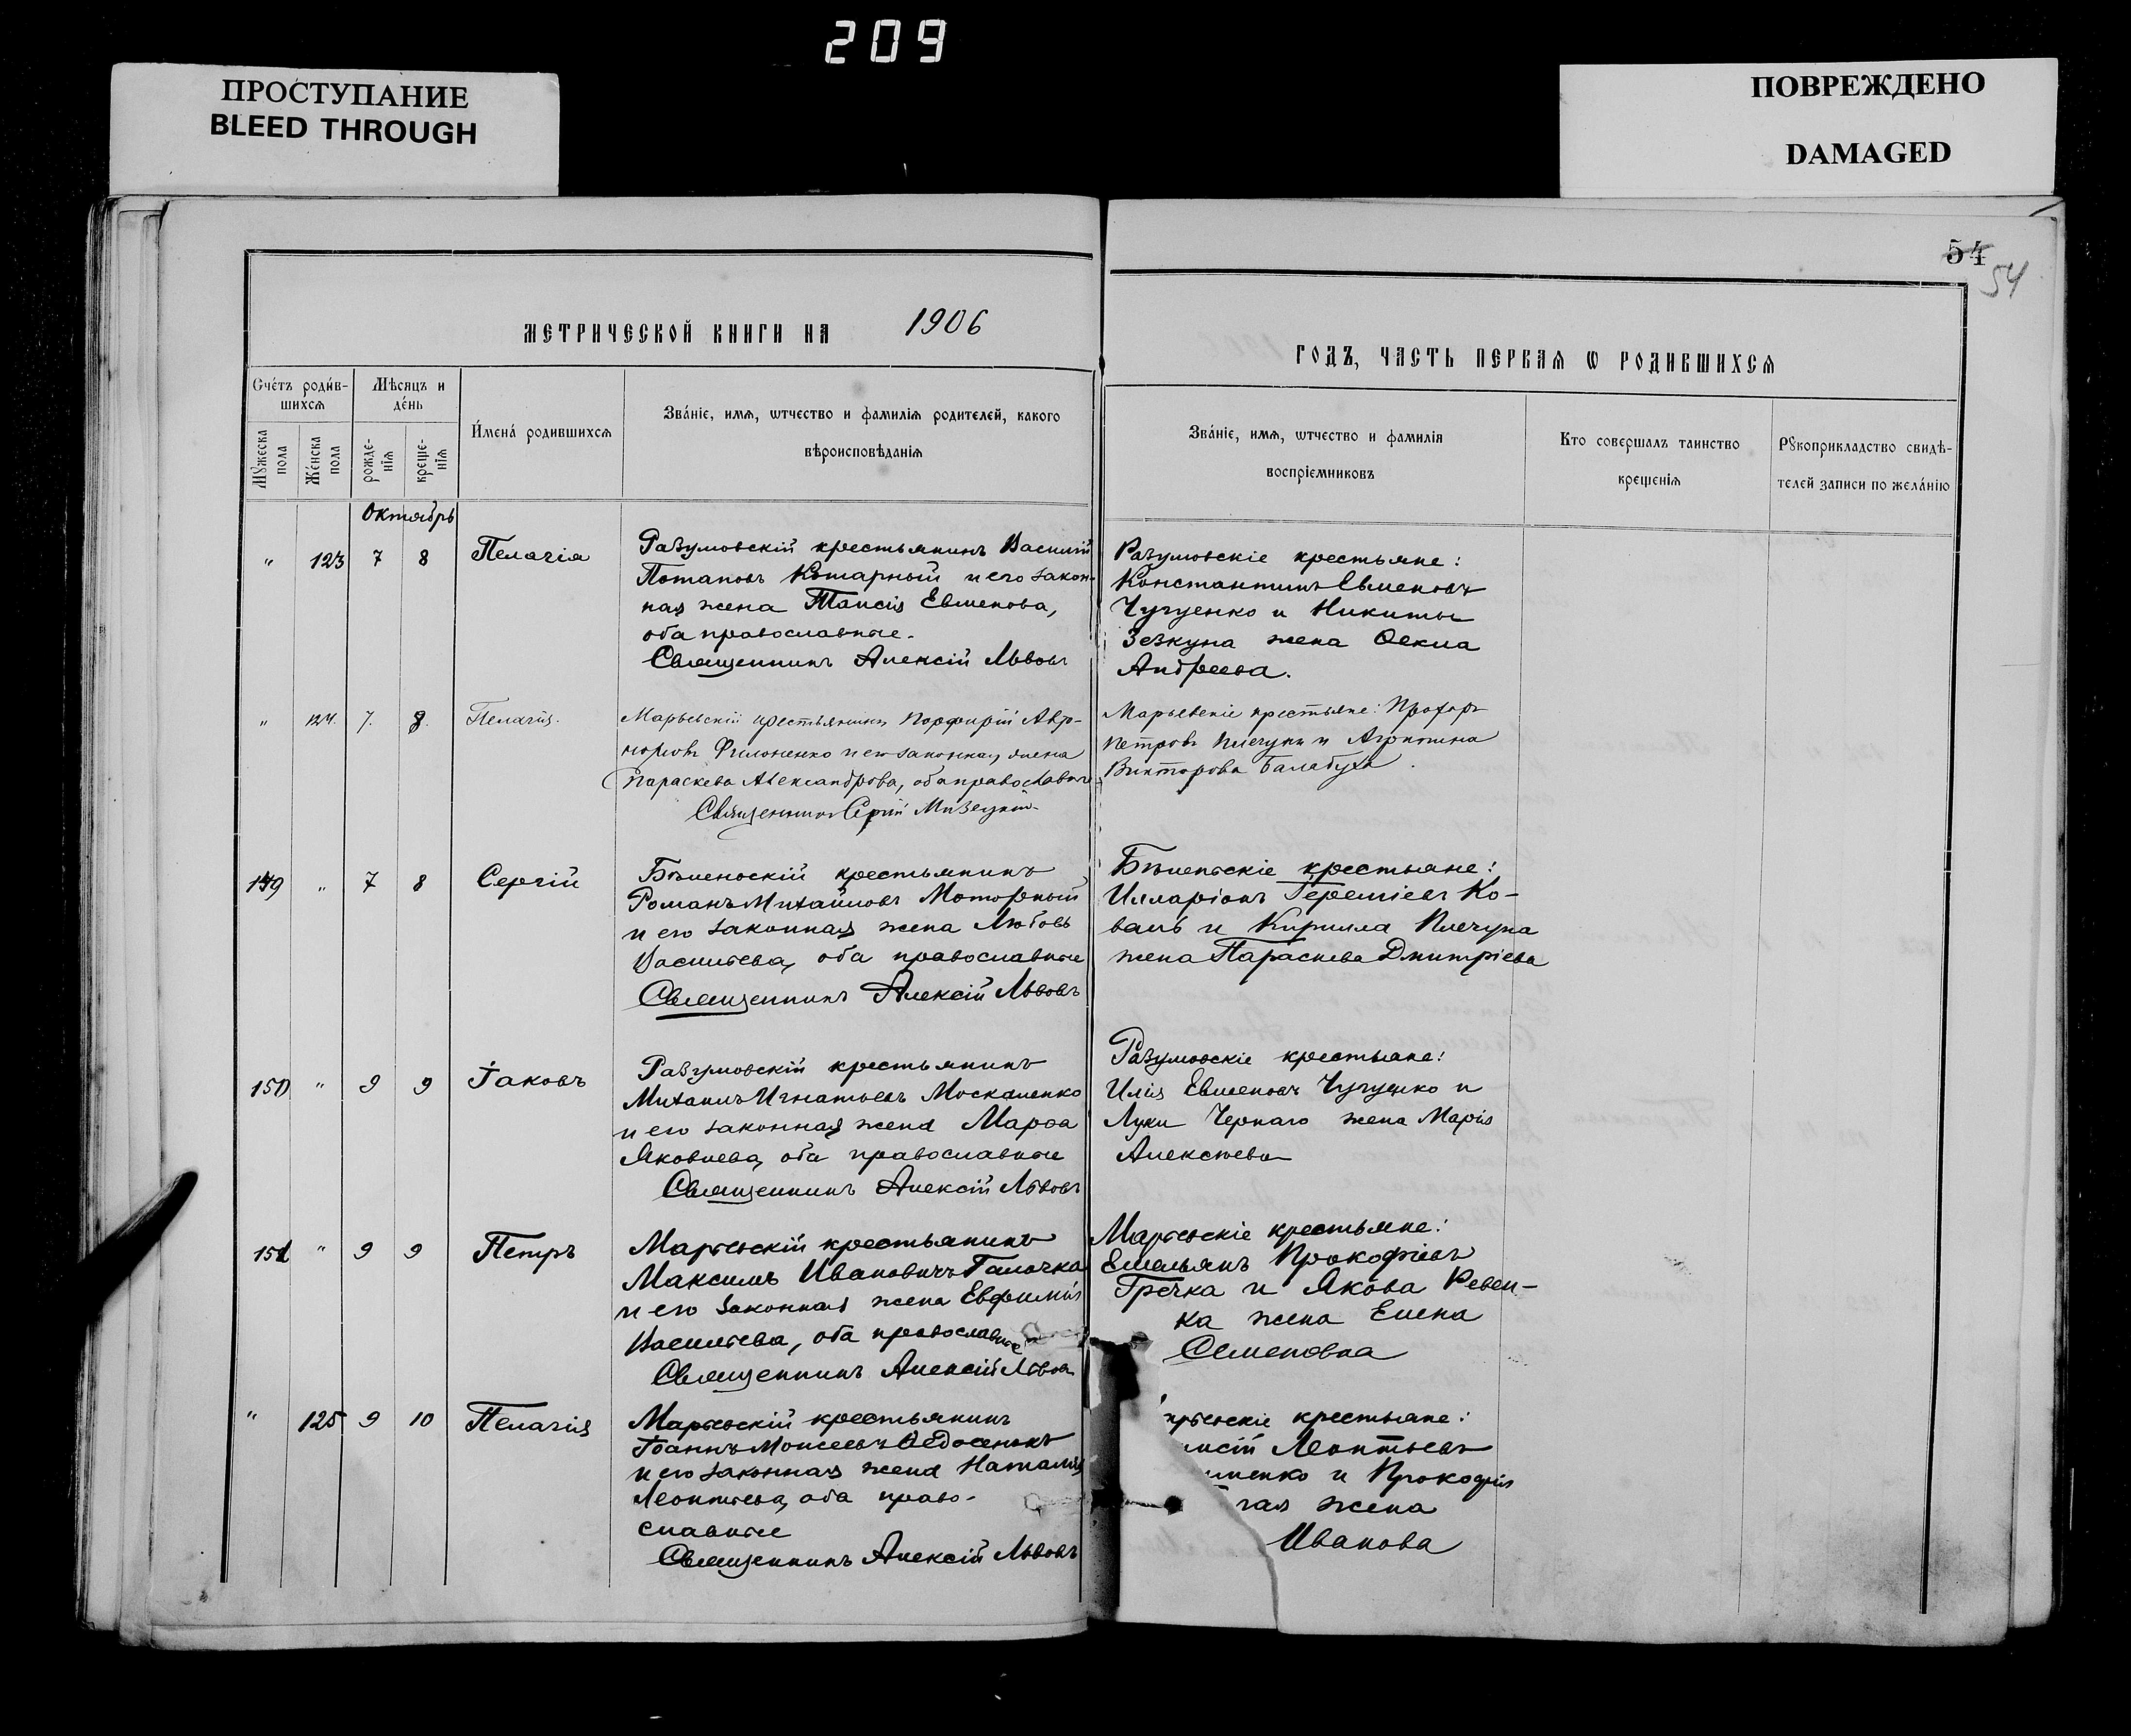 209
ПРОСТУПАНИЕ
BLEED THROUGH
ПОВРЕЖДЕНО
DAMAGED
54
54
МЕТРИЧЕСКОЙ КНИГИ НА 1906
ГОДЪ, ЧАСТЬ ПЕРВАѦ Ѡ РОДИВШИХСѦ
Счетъ родив-
шихсѧ
Мѣсяцъ и
день
Имена родившихсѧ
Званіе, имѧ, ѡтчество и фамиліѧ родителей, какого
вѣроисповѣданіѧ
Мꙋжеска
пола
Женска
пола
рожде-
ніѧ
креще-
ніѧ
Званіе, имѧ, ѡтчество и фамиліѧ
воспріємниковъ
Кто совершалъ таинство
крещеніѧ
Рꙋкоприкладство свидѣ-
телей записи по желанію
Октябрь
" 123 7 8 Пелагія
Разумовскій крестьянинъ Василій
Потаповъ Комарный и его закон-
ная жена Таисія Евменова,
оба православные.
Священникъ Алексій Львовъ
Разумовскіе крестьяне:
Константинъ Евменовъ
Чугуенко и Никиты
Зезкуна жена Ѳекла
Андреева.
" 124. 7. 8. Пелагія.
Марьевскій крестьянинъ Порфирій
Филоненко и его законная жена
Параскева Александрова, оба православные
Священникъ Сергій
Марьевскіе крестьяне: Прохоръ
Петровъ Плечунъ и Агрипина
Викторова Балабуха.
149 " 7 8 Сергій
Бѣленьскій крестьянинъ
Романъ Михайловъ Моторный
и его законная жена Любовь
Васильева, оба православные
Священникъ Алексій Львовъ
Бѣленьскіе крестьяне:
Илларіонъ Іереміевъ Ко-
валь и Кирилла Плечуна
жена Параскева Дмитріева
150 " 9 9 Іаковъ
Разумовскій крестьянинъ
Михаилъ Игнатьевъ Москаленко
и его законная жена Марѳа
Яковлева, оба православные
Священникъ Алексій Львовъ
Разумовскіе крестьяне:
Илія Евменовъ Чугуенко и
Луки Чернаго жена Марія
Алексѣева
151 " 9 9 Петръ
Марьевскій крестьянинъ
Максимъ Ивановичъ Галочка
и его законная жена Евфимія
Васильева, оба православные
Священникъ Алексій Львовъ
Марьевскіе крестьяне:
Емельянъ Прокофіевъ
Гречка и Якова Ревен-
ка жена Елена
Семеновна
" 125 9 10 Пелагія
Марьевскій крестьянинъ
Іоаннъ Моисеевъ Ѳедосенокъ
и его законная жена Наталія
Леонтьева, оба право-
славные
Священникъ Алексій Львовъ
крестьяне:
Леонтьевъ
и Прокофія
жена
Иванова